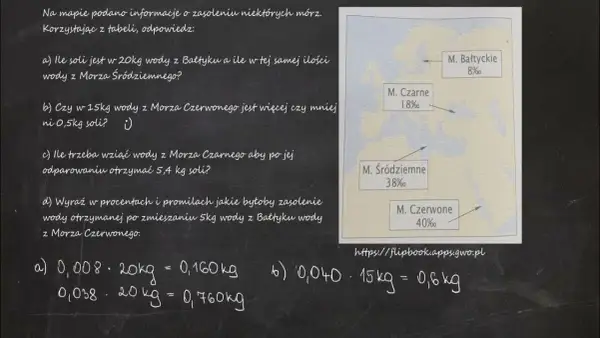 Na mapie podano informacje o zasoleniu niektórych mórz.
Korzystając z tabeli, odpowiedz:
a) Ile soli jest w 20kg wody z Bałtyku a ile w tej samej ilości
wody z Morza Śródziemnego?
b) Czy w 15kg wody z Morza Czerwonego jest więcej czy mniej
ni 0,5kg soli?
c) Ile trzeba wziąć wody z Morza Czarnego aby po jej
odparowaniu otrzymać 5,4 kg soli?
d) Wyraź w procentach i promilach jakie byłoby zasolenie
wody otrzymanej po zmieszaniu 5kg wody z Bałtyku wody
z Morza Czerwonego.
M. Bałtyckie
8‰
M. Czarne
18‰
M. Śródziemne
38‰
M. Czerwone
40‰
https://flipbook.apps.gwo.pl
a) 0,008 · 20kg = 0,160kg
0,038 · 20 kg = 0,760kg
b) 0,040 · 15kg = 0,6 kg